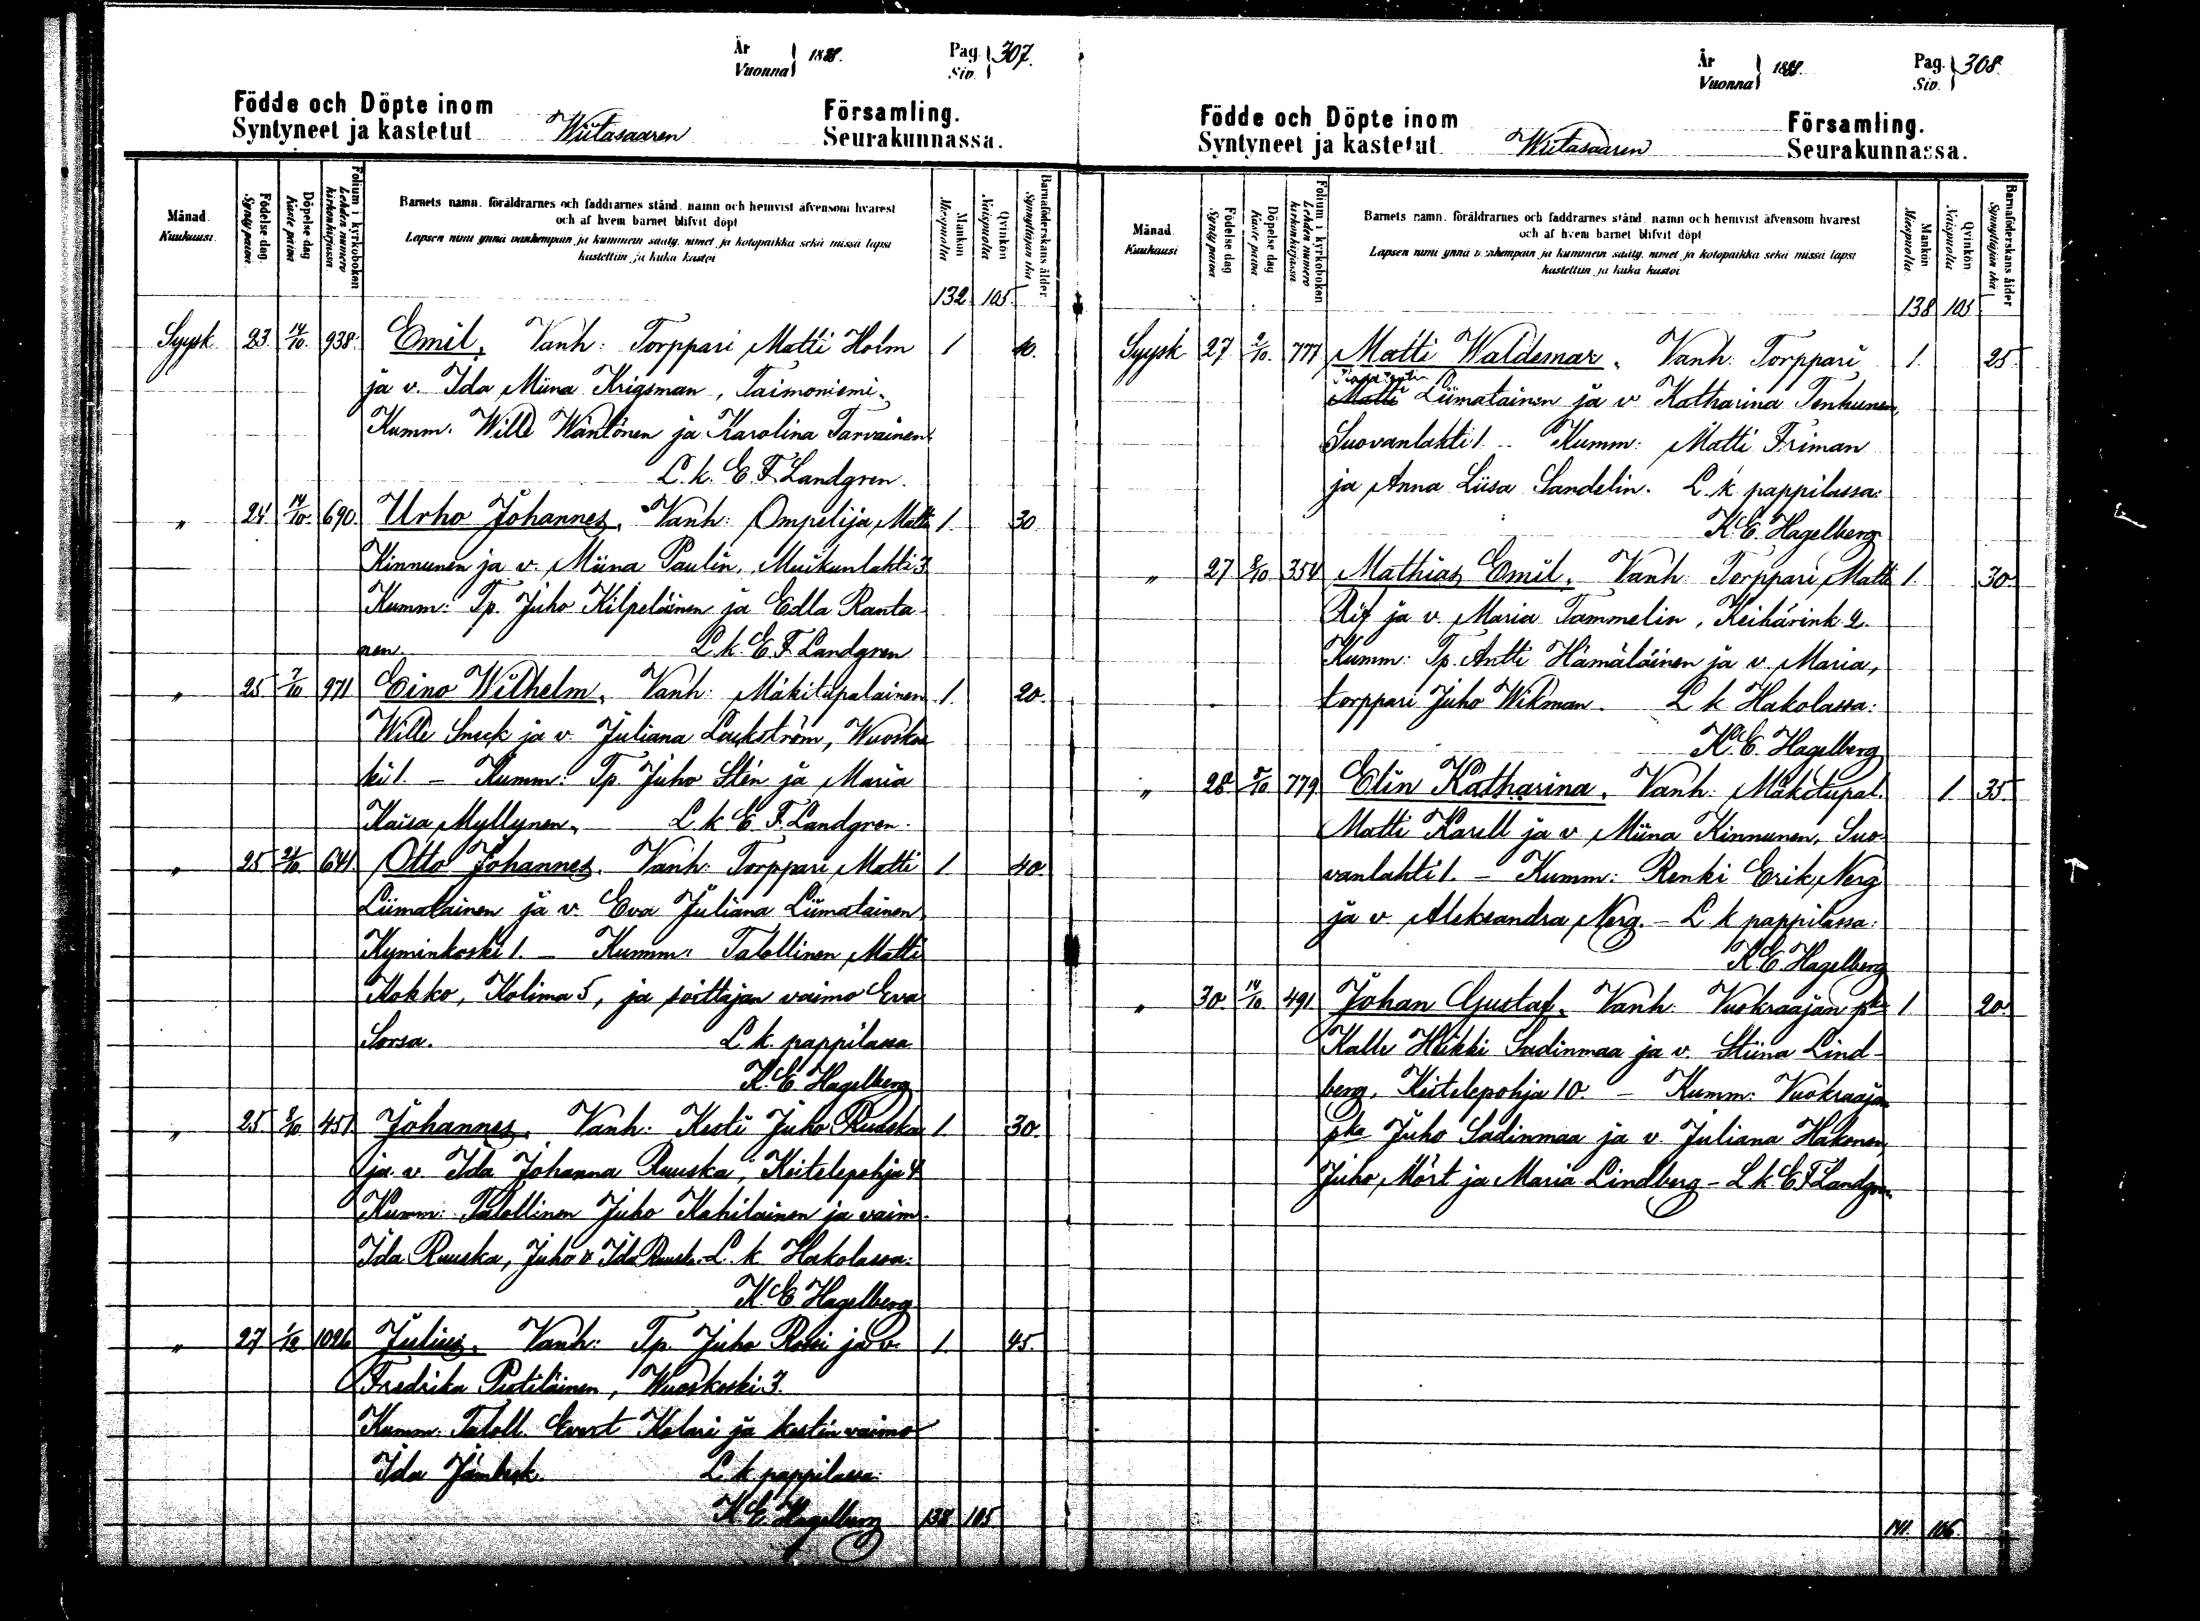 År
Vuonna } 1888.
Pag.
Siv. } 307.
Födde och Döpte inom
Syntyneet ja kastetut
Wiitasaaren
Församling.
Seurakunnassa.
Månad.
Kuukausi.
Födelse dag
Syntypäivä
Döpelse dag
Kaste päivä
Folium i kyrkoboken
Lehden numero kirkonkirjassa
Barnets namn, föräldrarnes och faddrarnes stånd, namn och hemvist äfvensom hvarest
och af hvem barnet blifvit döpt
Lapsen nimi ynnä vanhempain ja kummein sääty, nimet ja kotopaikka sekä missä lapsi
kastettiin ja kuka kastoi
Mankön
Miespuolia
Qvinkön
Naispuolia
Barnaföderskans ålder
Synnyttäjän ikä
132 105.
Syysk. 23. 14/10 938. Emil, Vanh: Torppari Matti Holm 1 40.
ja v. Ida Miina Krigsman, Taimoniemi.
Kumm. Wille Wäntönen ja Karolina Tarvainen.
L. k. E. F. Landgren.
" 24 14/10. 690. Urho Johannes, Vanh: Ompelija Matti 1. 30.
Kinnunen ja v. Miina Paulin, Muikunlahti 3
Kumm: Tp. Juho Kilpeläinen ja Edla Ranta
nen. L. k. E. F. Landgren
" 25 7/10 971 Eino Wilhelm, Vanh: Mäkitupalainen 1. 20.
Wille Sneck ja v. Juliana Lackström, Wuoskos
ki 1. – Kumm: Tp. Juho Stén ja Maria
Kaisa Myllynen. L. k. E. F. Landgren.
" 25 21/10 641. Otto Johannes. Vanh: Torppari Matti 1. 40.
Liimatainen ja v. Eva Juliana Liimatainen
Kyminkoski 1. – Kumm: Talollinen Matti
Kokko, Kolima 5, ja soittajan vaimo Eva
Sorsa. L. k. pappilassa
K. E. Hagelberg
" 25 8/10 451. Johannes. Vanh: Kesti Juho Ruuska 1. 30.
ja v. Ida Johanna Ruuska, Keitelepohja 4.
Kumm: Talollinen Juho Kahilainen ja vaim.
Ida Ruuska, Juho o Ida Ruuska. L. k. Hakolassa:
K. E. Hagelberg
" 27 1096 Julius. Vanh: Tp. Juho Rossi ja v. 1. 45.
Fredrika Piutiläinen, Wuoskoski 3.
Kumm. Taloll. Evert Kolari ja kestin vaimo
Ida Jämbäck L. k. pappilassa:
K. E. Hagelberg 138 105
År
Vuonna } 1888.
Pag.
Siv. } 308.
Födde och Döpte inom
Syntyneet ja kastetut
Wiitasaaren
Församling.
Seurakunnassa.
Månad
Kuukausi
Födelse dag
Syntypäivä
Döpelse dag
Kaste päivä
Folium i kyrkoboken
Lehden numero kirkonkirjassa
Barnets namn, föräldrarnes och faddrarnes stånd, namn och hemvist äfvensom hvarest
och af hvem barnet blifvit döpt
Lapsen nimi ynnä vanhempain ja kummein sääty, nimet ja kotopaikka sekä missä lapsi
kastettiin ja kuka kastoi
Mankön
Miespuolia
Qvinkön
Naispuolia
Barnaföderskans ålder
Synnyttäjän ikä
138 105
Syysk 27 2/10. 777 Matti Waldemar. Vanh: Torppari 1. 25.
Matti Liimatainen ja v Katharina Tenhunen,
Suovanlahti 1. – Kumm: Matti Friman
ja Anna Liisa Sandelin. L. k. pappilassa:
K. E. Hagelberg
" 27 8/10 354 Mathias Emil. Vanh: Torppari Matti 1. 30.
Rif ja v. Maria Tammelin, Keihärink. 2.
Kumm: Tp. Antti Hämäläinen ja v. Maria,
torppari Juho Wikman. L k Hakolassa:
K. E. Hagelberg
" 28 5/10 779 Elin Katharina. Vanh: Mäkitupal. 1. 35.
Matti Karell ja v Miina Kinnunen, Suo-
vanlahti 1. – Kumm: Renki Erik Nerg
ja v. Aleksandra Nerg. – L. k. pappilassa:
K. E. Hagelberg
" 30. 14/10. 491 Johan Gustaf. Vanh. Vuokraajan pka 1 20.
Kalle Heikki Sadinmaa ja v. Stiina Lind-
berg, Keitelepohja 10. – Kumm: Vuokraajan
pka Juho Sadinmaa ja v. Juliana Hakonen,
Juho Mört ja Maria Lindberg – L. k. E. F. Landgren.
141. 106.